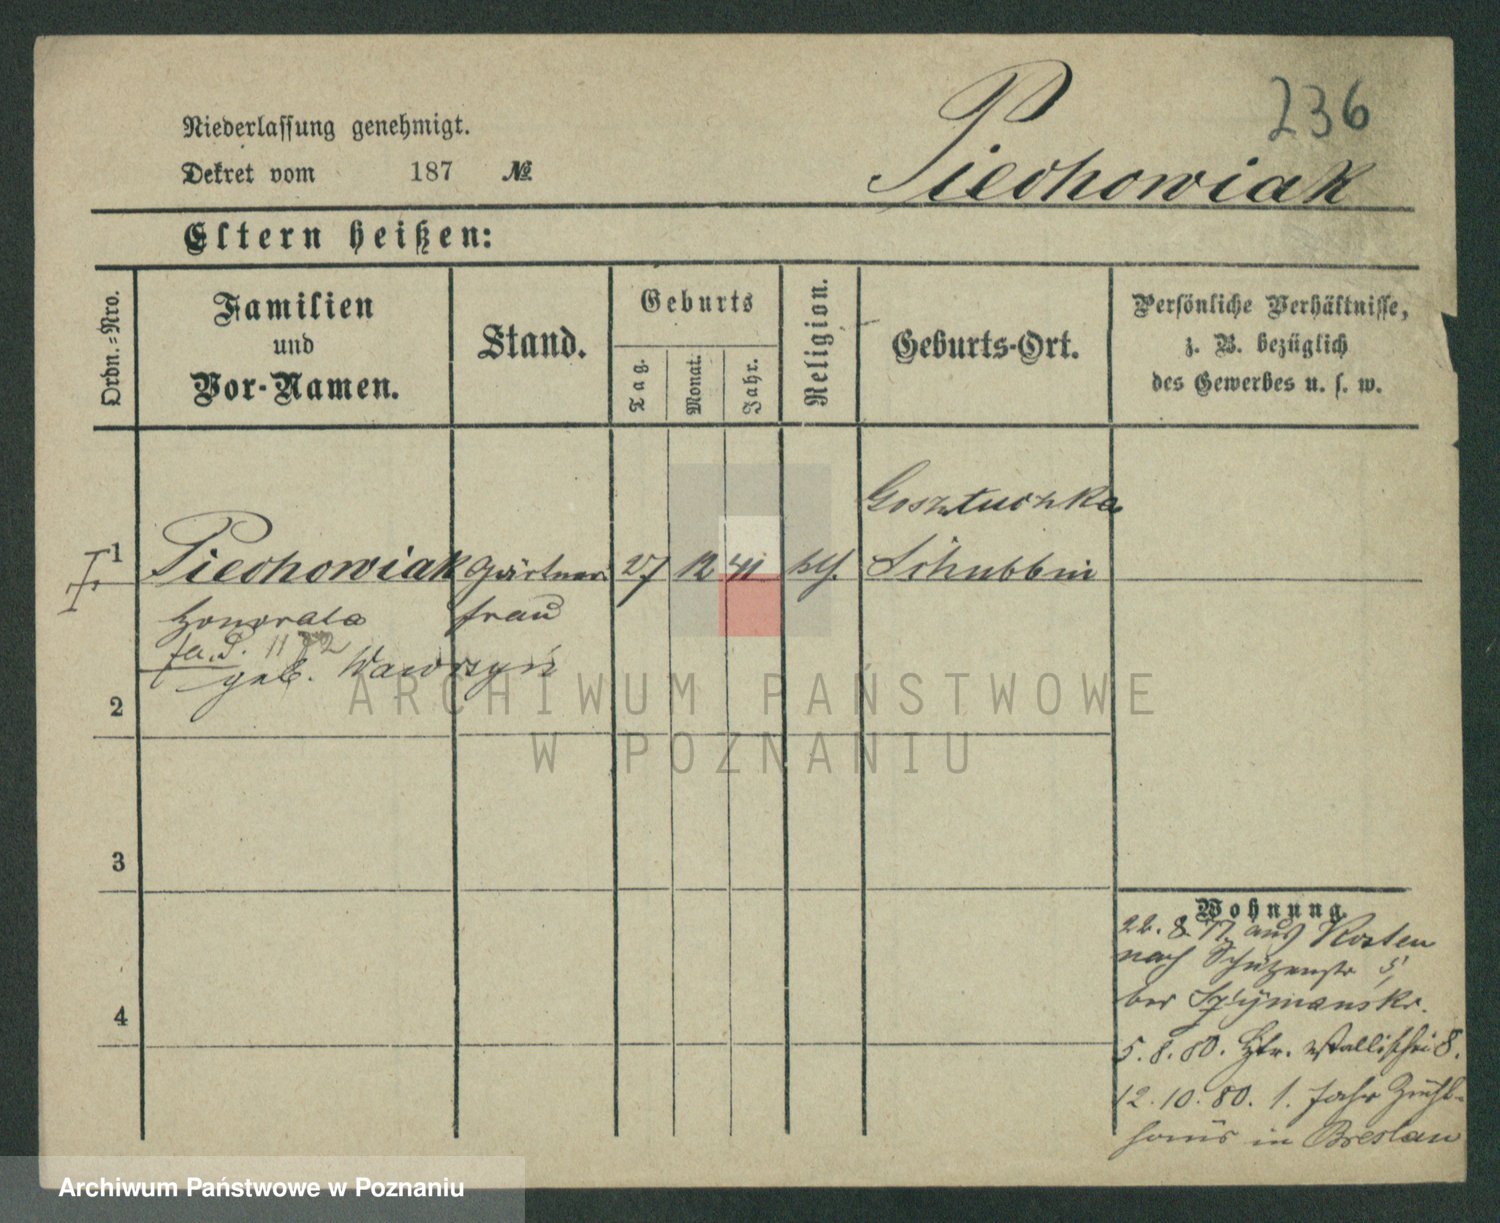 236
Niederlassung genehmigt.
Dekret vom 187 №
Piechowiak
Eltern heißen:
Ordn.-Nro.
Familien
und
Vor-Namen.
Stand.
Geburts
Tag.
Monat.
Jahr.
Religion.
Geburts-Ort.
Persönliche Verhältnisse,
z. B. bezüglich
des Gewerbes u. s. w.
Gosztuchka
1 Piechowiak Gärtner 27 12 41 kth. Schubbin
Honorata frau
geb. Wawrzyn
2
ARCHIWUM PAŃSTWOWE
W POZNANIU
3
Wohnung
22. 8. 77 aus Kosten
nach Schützenstr 5
bei
4
5. 8. 80. 8.
12. 10. 80. 1. Jahr Zucht-
haus in Breslau
Archiwum Państwowe w Poznaniu